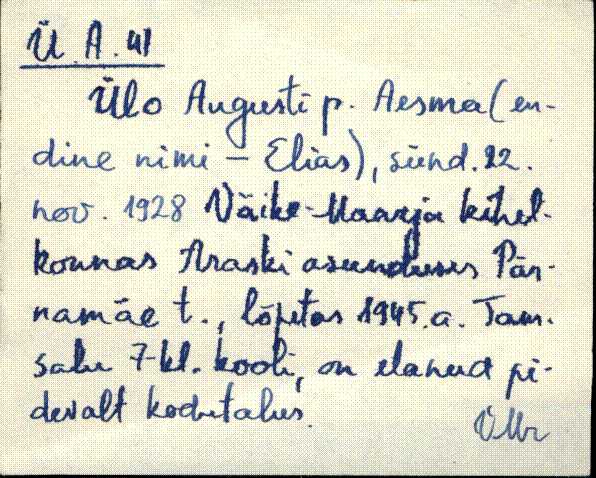 Ü. A. 41
Ülo Augusti p. Aesma (en-
dine nimi – Elias), sünd. 22.
nov. 1928 Väike-Maarja kihel-
konnas Araski asunduses Pär-
namäe t., lõpetas 1945.a. Tam-
salu 7-kl. kooli, on elanud pi-
devalt kodutalus.